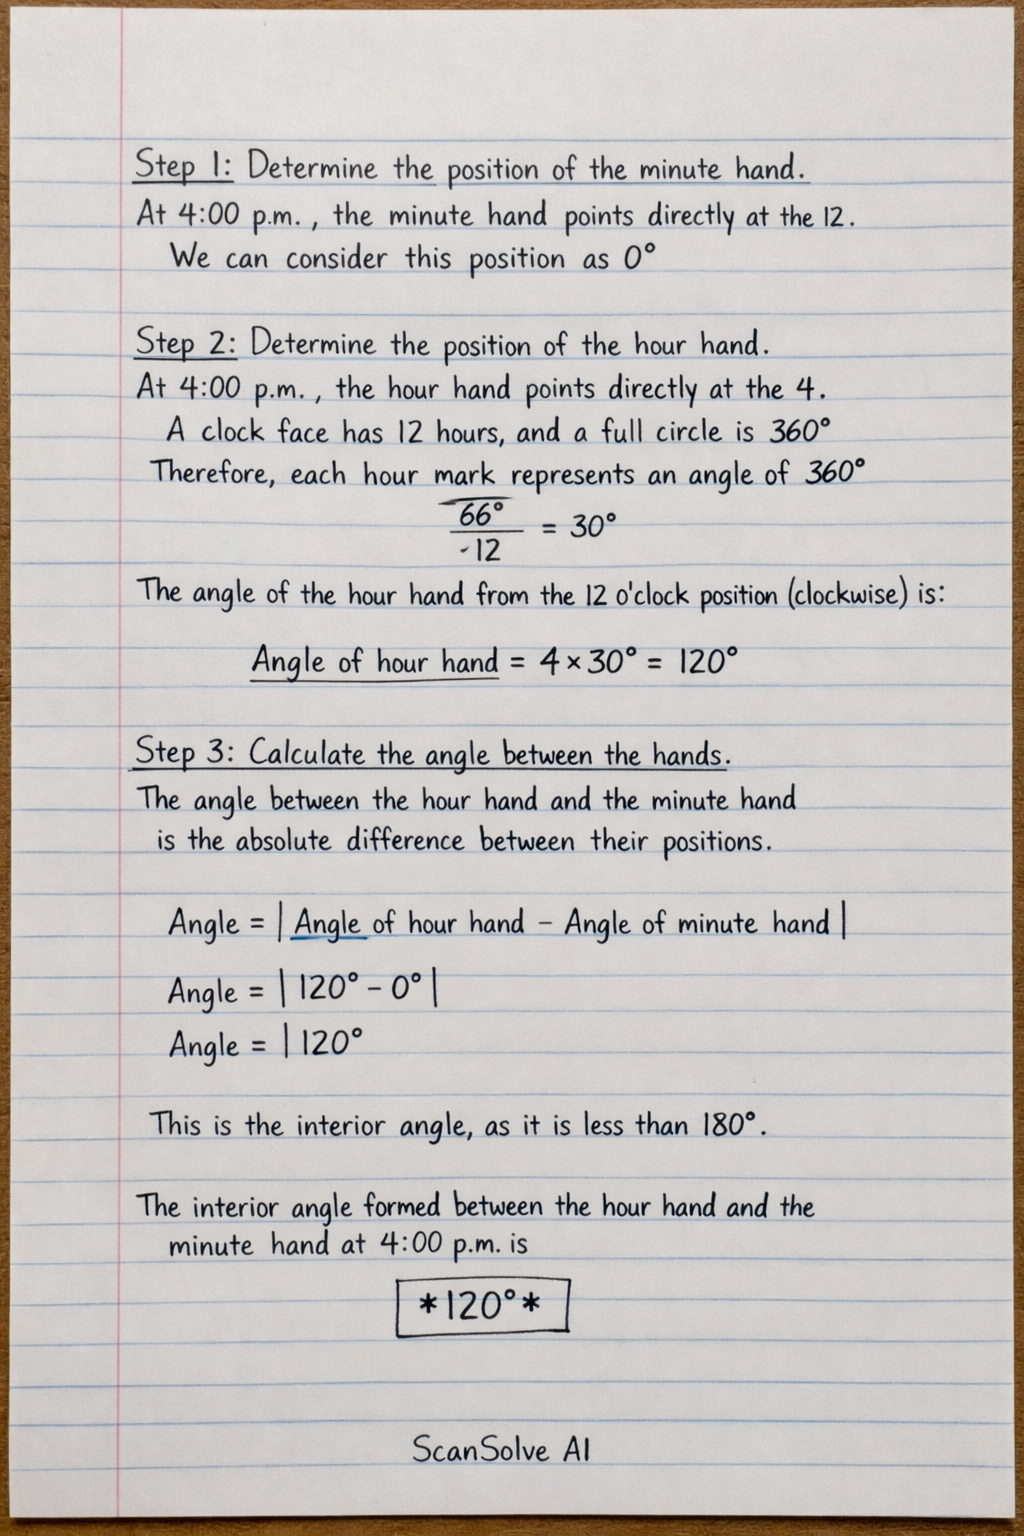 Step 1: Determine the position of the minute hand.
At 4:00 p.m., the minute hand points directly at the 12.
We can consider this position as 0°
Step 2: Determine the position of the hour hand.
At 4:00 p.m., the hour hand points directly at the 4.
A clock face has 12 hours, and a full circle is 360°
Therefore, each hour mark represents an angle of 360°
66°
-12
= 30°
The angle of the hour hand from the 12 o'clock position (clockwise) is:
Angle of hour hand = 4 × 30° = 120°
Step 3: Calculate the angle between the hands.
The angle between the hour hand and the minute hand
is the absolute difference between their positions.
Angle = | Angle of hour hand - Angle of minute hand |
Angle = | 120° - 0° |
Angle = | 120°
This is the interior angle, as it is less than 180°.
The interior angle formed between the hour hand and the
minute hand at 4:00 p.m. is
*120°*
ScanSolve AI